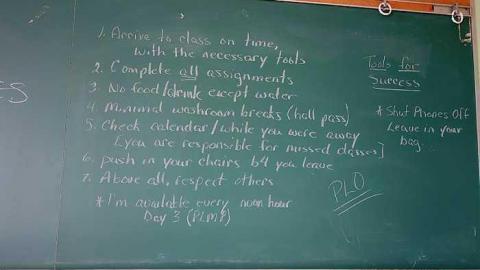 1. Arrive to class on time,
with the necessary tools
2. Complete all assignments
3. No food/drink except water
4. Minimal washroom breaks (hall pass)
5. Check calendar/while you were away
[you are responsible for missed classes]
6. push in your chairs b4 you leave
7. Above all, respect others
*I'm available every noon hour
Day 3 (PLMF)
Tools for
Success
*Shut Phones Off
Leave in your
bag...
PLO
ES